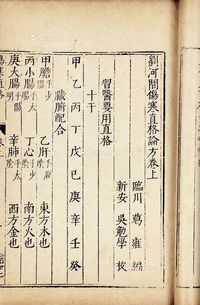 劉河間傷寒直格論方卷上
臨川 葛雍 編
新安 吳勉學 校
習醫要用直格
十干
甲乙丙丁戊己庚辛壬癸
臟腑配合
甲膽 乙肝 東方木也
丙小腸 丁心 南方火也
庚大腸 辛肺 西方金也
傷寒直格